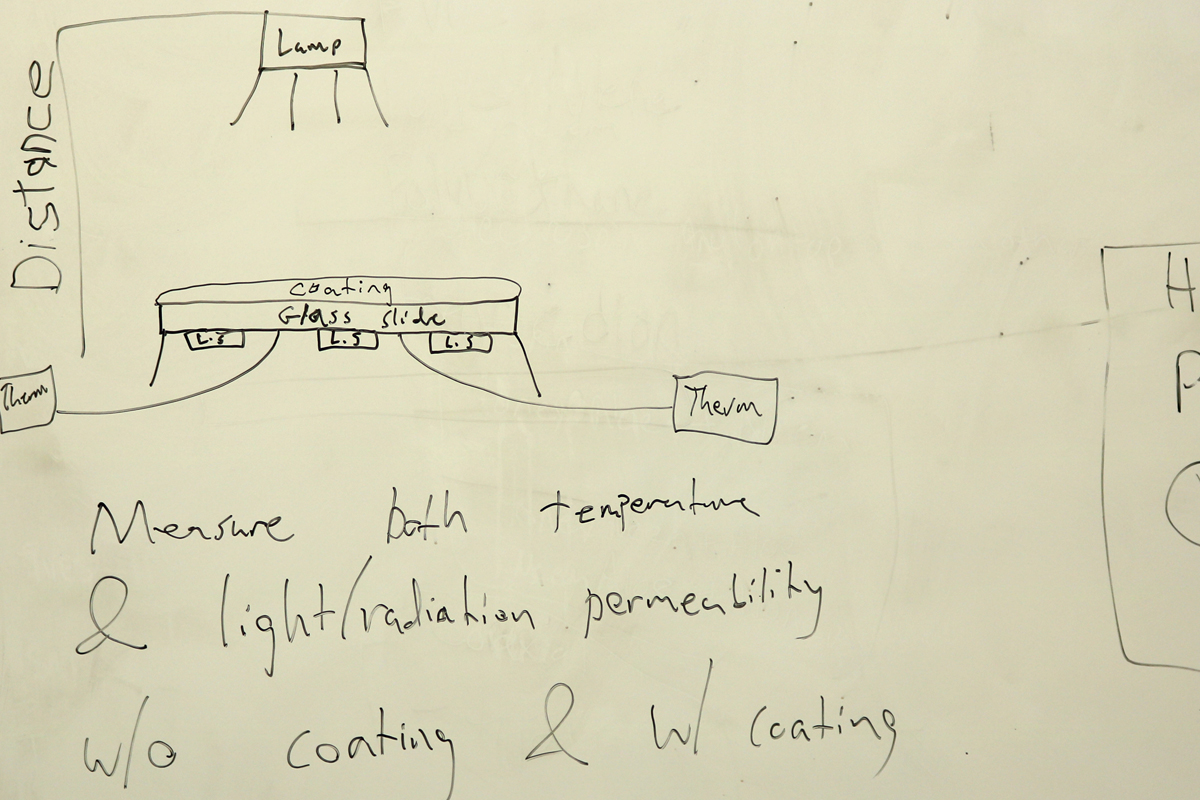 Lamp
Distance
coating
Glass slide
L.S L.S L.S
Therm
Therm
Measure both temperature
& light/radiation permeability
w/o coating & w/ coating
H
P